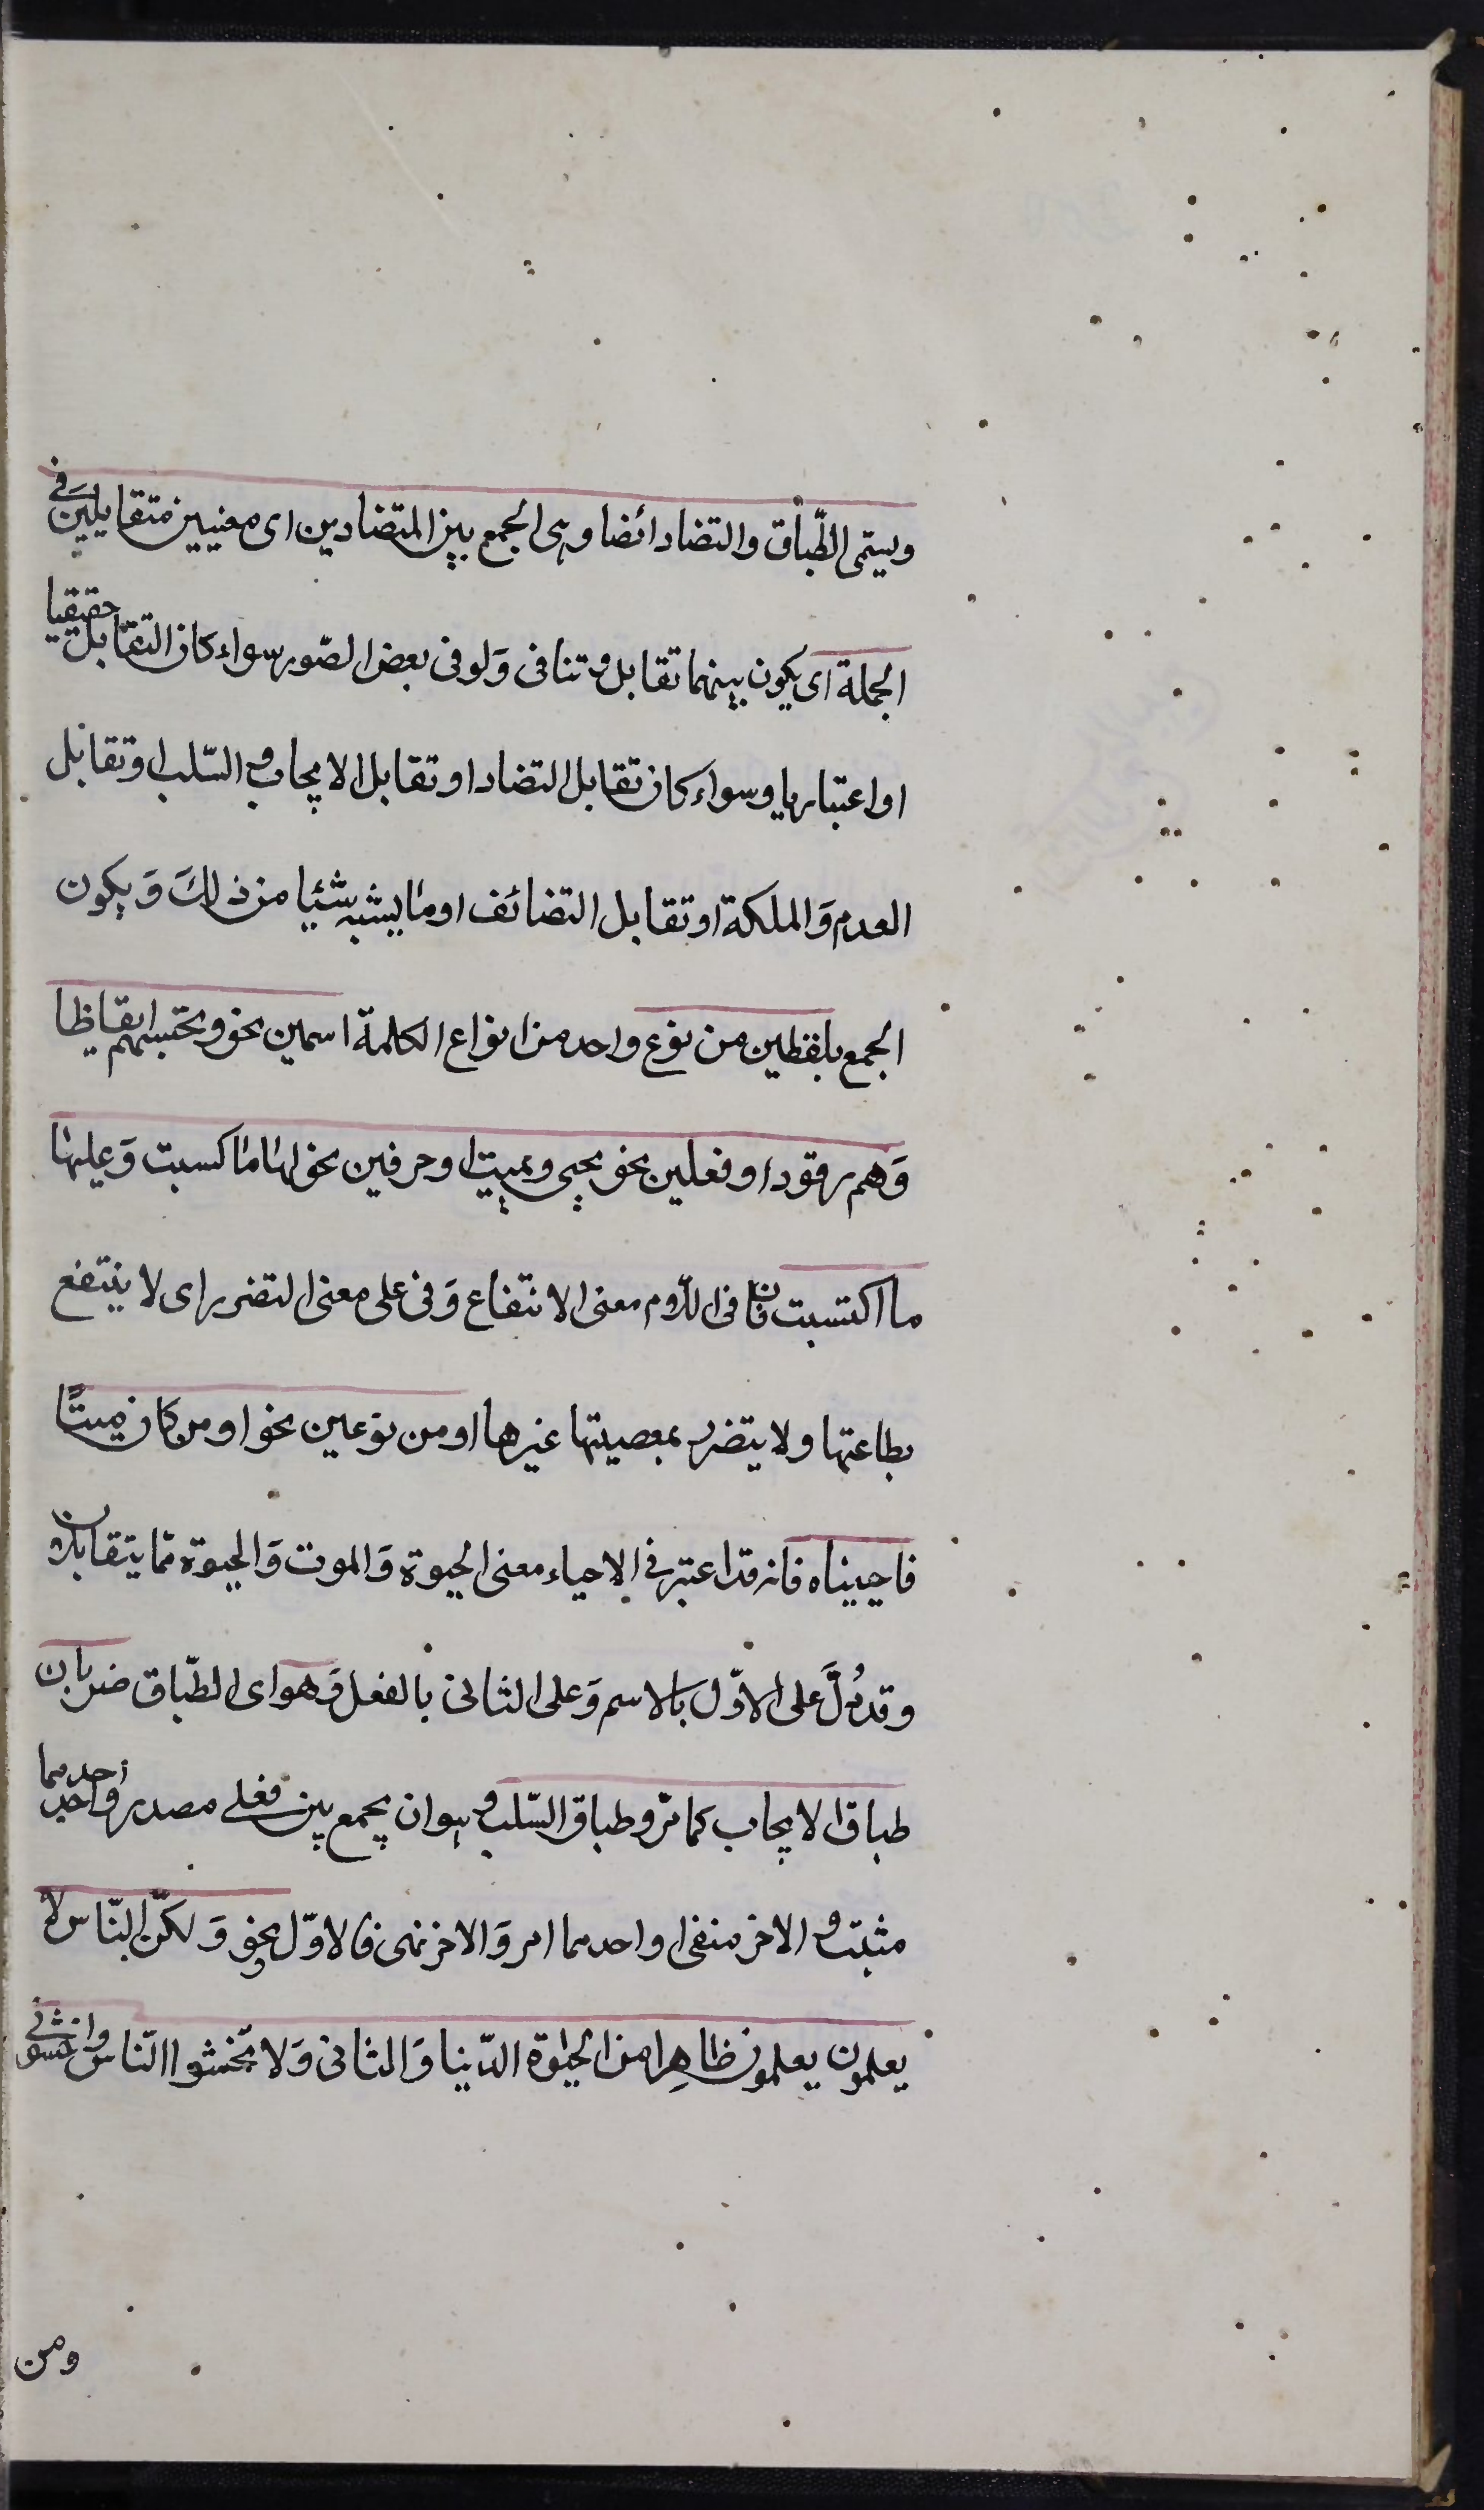 ويسمى الطّباق والتضاد ائضا وهى الجمع بين المتضادين اى معنيين متقابلين فى
الجملة اى يكون بينهما تقابل و تنافى وَلو فى بعض الصّور سواء كان التقابل حقيقيا
او اعتباريا وسواء كان تقابل التضاد او تقابل الايجاب و السّلب او تقابل
العدم وَالملكة او تقابل التضائف او ما يشبه شئيا من ذلكَ وَ يكون
الجمع بلفظين من نوع واحد من انواع الكلمة اسمين نحو وتحسبهم ايقاظا
وَهم رقود او فعلين نحو يحيى ويميت او حرفين نحو لها ما كسبت وَعليها
ما اكتسبت فان فى اللّام معنى الانتفاع وَفى على معنى التضرر اى لا ينتفع
بطاعتها ولا يتضرر بمعصيتها غيرها او من نوعين نحو او من كان ميتًا
فاحييناه فانه قد اعتبر فى الاحياء معنى الحيوة وَالموت وَالحيوة ممّا يتقابلان
وقد دُلَّ على الاوّل بالاسم وَعلى الثانى بالفعل وَهو اى الطّباق ضربان
طباق الايجاب كما مرّ وطباق السّلب و هو ان يجمع بين فعلى مصدر واحد احدهما
مثبت و الاخر منفى او احدهما امر وَالاخر نهى فالاوّل نحو وَلكنّ النّاس لا
يعلمون يعلمون ظاهِرا من الحيٰوة الدّنيا وَالثانى وَلا تخشوا النّاس واخشونى
ومن